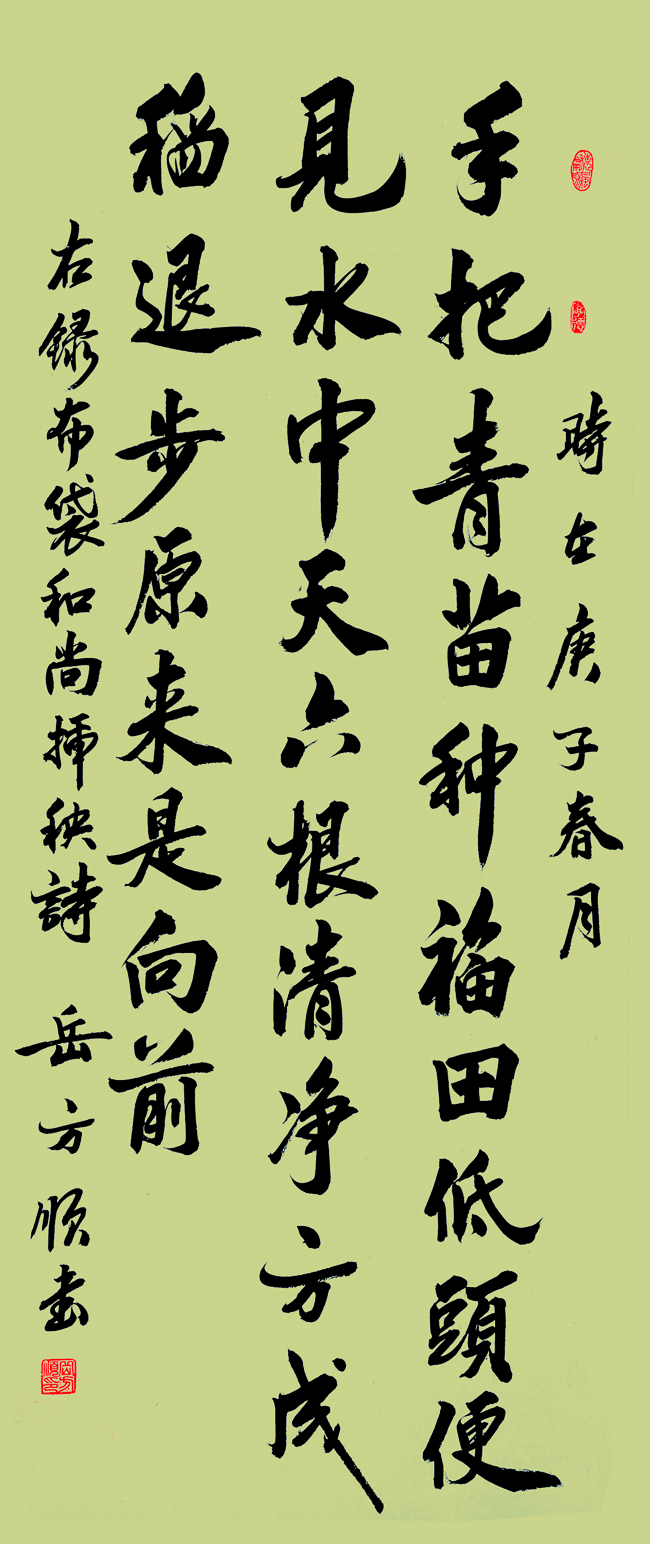 時在庚子春月
手把青苗种福田低頭便
見水中天六根清净方成
稻退步原来是向前
右録布袋和尚插秧詩 岳方顺书